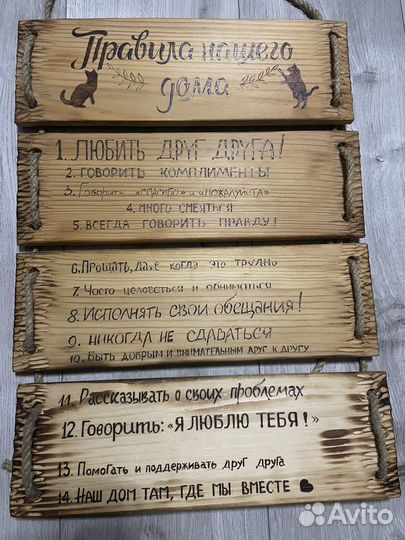 Правила нашего
дома
1. ЛЮБИТЬ ДРУГ ДРУГА!
2. ГОВОРИТЬ КОМПЛИМЕНТЫ
3. Говорить «СПАСИБО» и «ПОЖАЛУЙСТА»
4. МНОГО СМЕЯТЬСЯ
5. ВСЕГДА ГОВОРИТЬ ПРАВДУ!
6. Прощать, даже когда это трудно
7. Часто целоваться и обниматься
8. Исполнять свои обещания!
9. НИКОГДА НЕ СДАВАТЬСЯ
10. БЫТЬ ДОБРЫМ И ВНИМАТЕЛЬНЫМ ДРУГ К ДРУГУ
11. Рассказывать о своих проблемах
12. Говорить: «Я ЛЮБЛЮ ТЕБЯ!»
13. Помогать и поддерживать друг друга
14. НАШ ДОМ ТАМ, ГДЕ МЫ ВМЕСТЕ
Avito